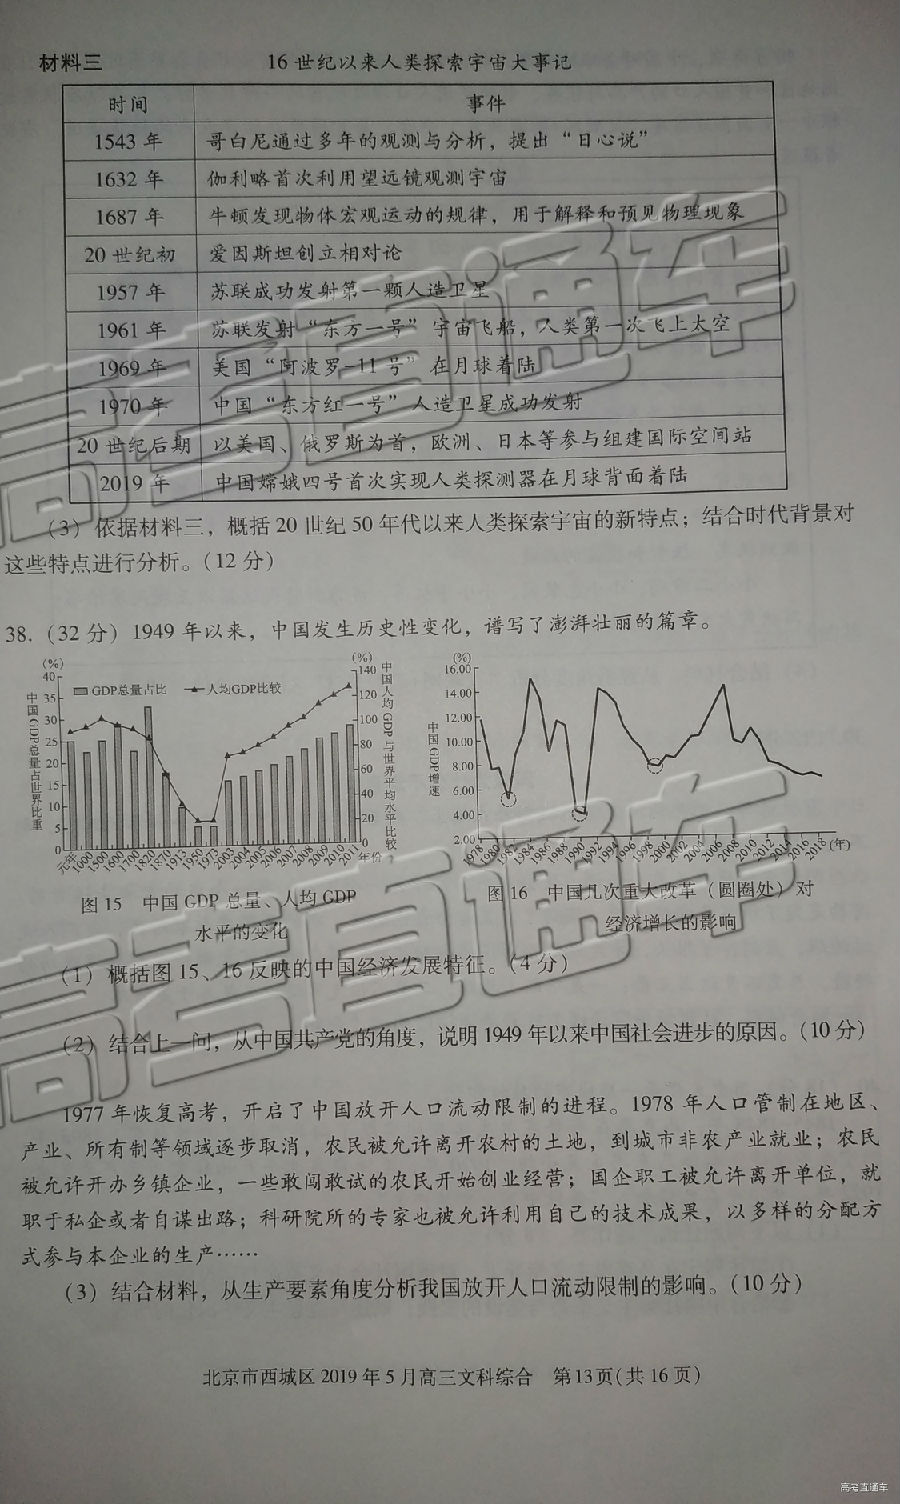 材料三 16世纪以来人类探索宇宙大事记
时间 事件
1543年 哥白尼通过多年的观测与分析，提出“日心说”
1632年 伽利略首次利用望远镜观测宇宙
1687年 牛顿发现物体宏观运动的规律，用于解释和预见物理现象
20世纪初 爱因斯坦创立相对论
1957年 苏联成功发射第一颗人造卫星
1961年 苏联发射“东方一号”宇宙飞船，人类第一次飞上太空
1969年 美国“阿波罗-11号”在月球着陆
1970年 中国“东方红一号”人造卫星成功发射
20世纪后期 以美国、俄罗斯为首，欧洲、日本等参与组建国际空间站
2019年 中国嫦娥四号首次实现人类探测器在月球背面着陆
（3）依据材料三，概括20世纪50年代以来人类探索宇宙的新特点；结合时代背景对
这些特点进行分析。（12分）
38.（32分）1949年以来，中国发生历史性变化，谱写了澎湃壮丽的篇章。
(%)
40
35
30
25
20
15
10
5
0
中国GDP总量占世界比重
GDP总量占比 人均GDP比较
(%)
140
120
100
80
60
40
20
0
中国人均GDP与世界平均水平比较
元年 1000 1500 1600 1700 1820 1870 1913 1950 1973 2003 2004 2005 2006 2007 2008 2009 2010 2011 年份
图15 中国GDP总量、人均GDP
水平的变化
(%)
16.00
14.00
12.00
10.00
8.00
6.00
4.00
2.00
中国GDP增速
1978 1980 1982 1984 1986 1988 1990 1992 1994 1996 1998 2000 2002 2004 2006 2008 2010 2012 2014 2016 2018 (年)
图16 中国几次重大改革（圆圈处）对
经济增长的影响
（1）概括图15、16反映的中国经济发展特征。（4分）
（2）结合上一问，从中国共产党的角度，说明1949年以来中国社会进步的原因。（10分）
1977年恢复高考，开启了中国放开人口流动限制的进程。1978年人口管制在地区、
产业、所有制等领域逐步取消，农民被允许离开农村的土地，到城市非农产业就业；农民
被允许开办乡镇企业，一些敢闯敢试的农民开始创业经营；国企职工被允许离开单位，就
职于私企或者自谋出路；科研院所的专家也被允许利用自己的技术成果，以多样的分配方
式参与本企业的生产……
（3）结合材料，从生产要素角度分析我国放开人口流动限制的影响。（10分）
北京市西城区2019年5月高三文科综合 第13页(共16页)
高考直通车
高考直通车
高考直通车